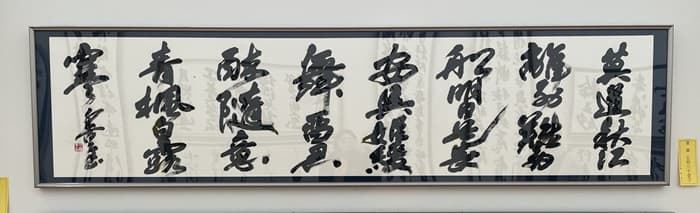 莫道秋江
離別難舟
船明日是長
安呉姫緩
舞留君
酔随意
青楓白露
寒